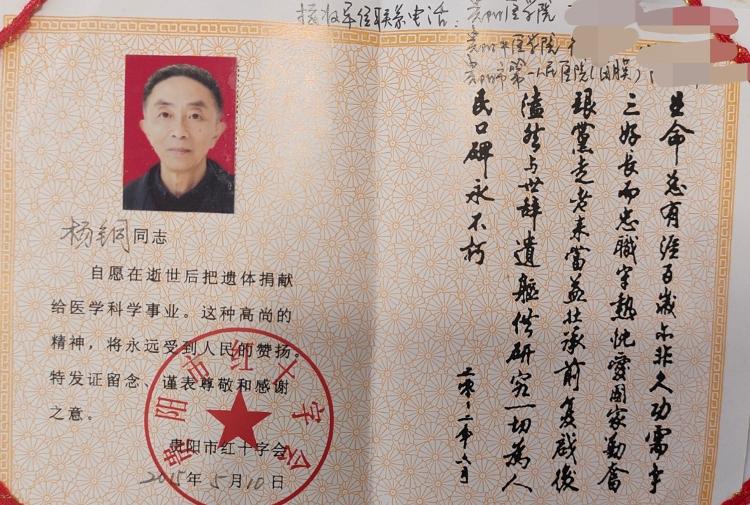 接收单位联系电话：贵州医学院
贵州中医学院
贵阳市第一人民医院
杨铜同志
自愿在逝世后把遗体捐献
给医学科学事业。这种高尚的
精神，将永远受到人民的赞扬。
特发证留念、谨表尊敬和感谢
之意。
贵阳市红十字会
2015年5月10日
贵阳市红十字会
生命总有涯百歲亦非久功需争
三好長而忠職守熱忱愛國家勤奮
跟黨走老来當益壮承前复啟後
溘然与世辞遺軀供研究一切為人
民口碑永不朽
二零一二年六月